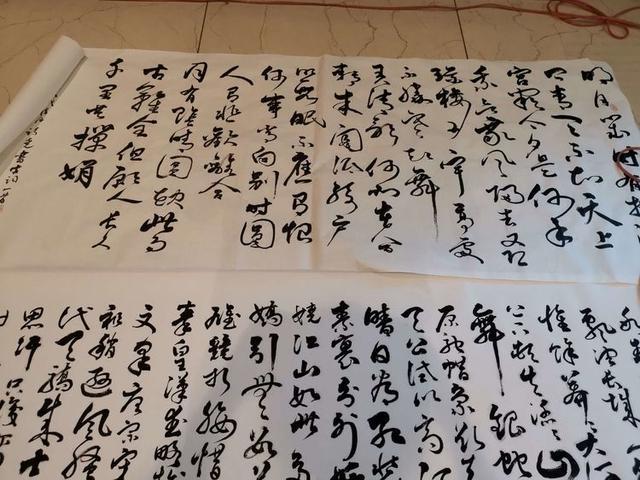 明月几时有
问青天不知天上
宫阙今夕是何年
我欲乘风归去又恐
琼楼玉宇高处
不胜寒起舞
弄清影何似在人间
转朱阁低绮户
照无眠不应有恨
何事长向别时圆
人有悲欢离合
月有阴晴圆缺此事
古难全但愿人长久
千里共婵娟
飘望长城
惟馀莽莽大河
上下顿失滔滔山
舞银蛇
原驰蜡象欲与
天公试比高
晴日看红装
素裹分外
娆江山如此多
娇引无数英
雄竞折腰惜
秦皇汉武略输
文采唐宗宋
祖稍逊风骚
代天骄成吉
思汗只识